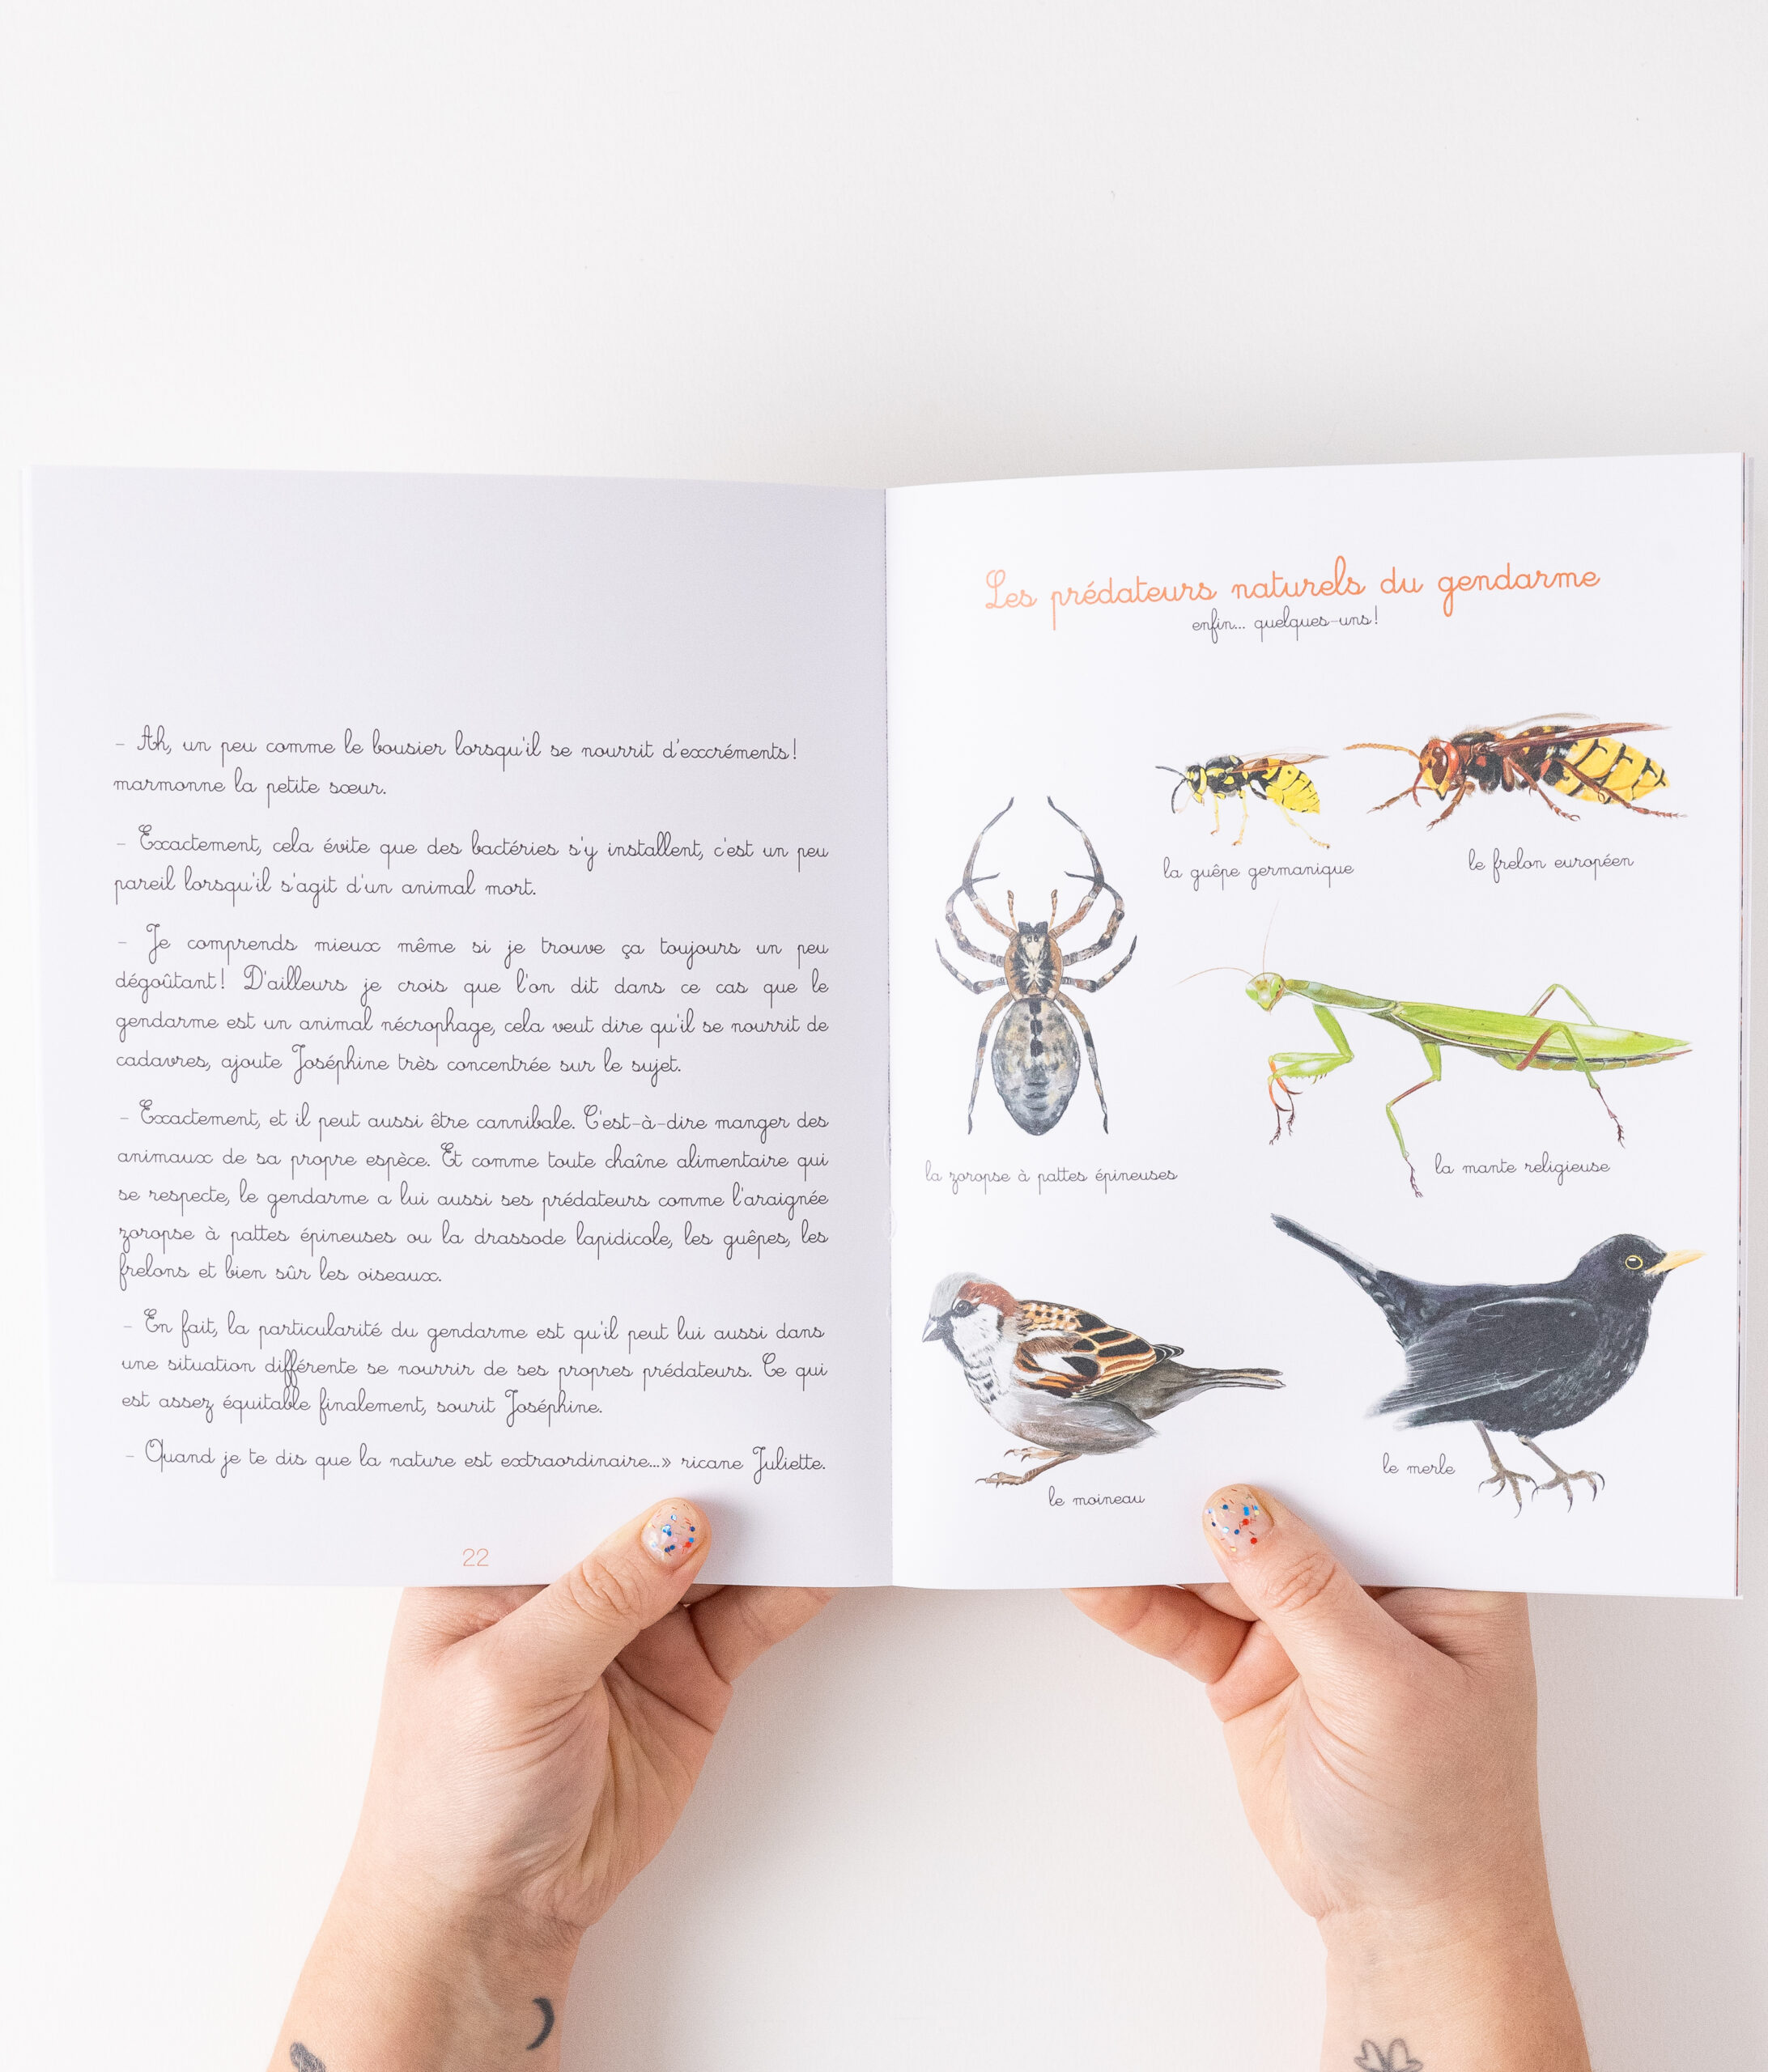 – Ah, un peu comme le bousier lorsqu'il se nourrit d'excréments!
marmonne la petite sœur.
– Exactement, cela évite que des bactéries s'y installent, c'est un peu
pareil lorsqu'il s'agit d'un animal mort.
– Je comprends mieux même si je trouve ça toujours un peu
dégoûtant! D'ailleurs je crois que l'on dit dans ce cas que le
gendarme est un animal nécrophage, cela veut dire qu'il se nourrit de
cadavres, ajoute Joséphine très concentrée sur le sujet.
– Exactement, et il peut aussi être cannibale. C'est-à-dire manger des
animaux de sa propre espèce. Et comme toute chaîne alimentaire qui
se respecte, le gendarme a lui aussi ses prédateurs comme l'araignée
zoropse à pattes épineuses ou la drassode lapidicole, les guêpes, les
frelons et bien sûr les oiseaux.
– En fait, la particularité du gendarme est qu'il peut lui aussi dans
une situation différente se nourrir de ses propres prédateurs. Ce qui
est assez équitable finalement, sourit Joséphine.
– Quand je te dis que la nature est extraordinaire...» ricane Juliette.
22
Les prédateurs naturels du gendarme
enfin... quelques-uns!
la guêpe germanique
le frelon européen
la zoropse à pattes épineuses
la mante religieuse
le moineau
le merle